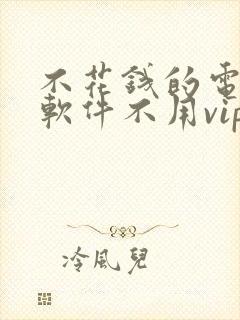 不花錢的電
軟件不用vip
冷風兒